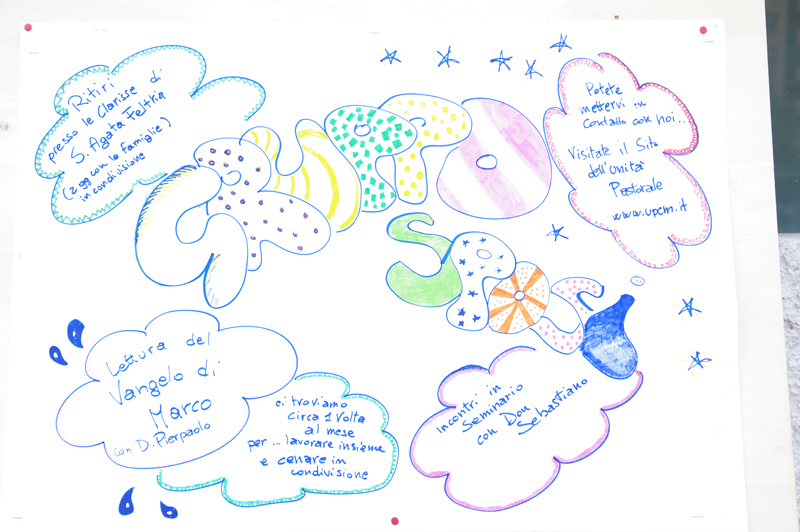 Ritiri
presso le Clarisse di
S. Agata Feltria
(2 gg con le famiglie)
in condivisione
GRUPPO
SPOSI
Potete
mettervi in
contatto con noi...
Visitate il Sito
dell'Unità
Pastorale
www.upcm.it
Lettura del
Vangelo di
Marco
con D. Pierpaolo
ci troviamo
circa 1 volta
al mese
per... lavorare insieme
e cenare in
condivisione
Incontri in
Seminario
con Don
Sebastiano